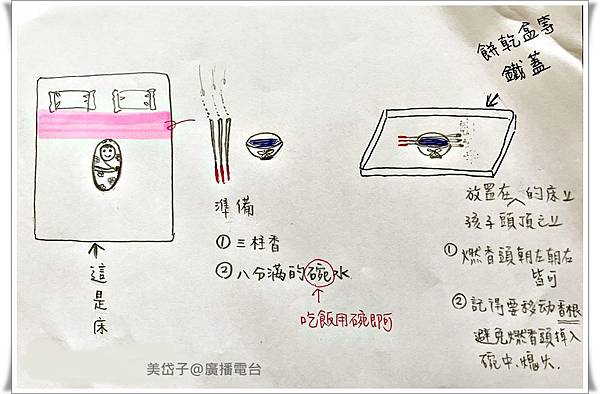 餅乾盒等
鐵蓋
準備
①三柱香
②八分滿的碗水
吃飯用碗即可
這是床
放置在^的床上
孩子頭頂之上
①燃香頭朝左朝右
皆可
②記得要移动香根
避免燃香頭掉入
碗中、熄失.
美岱子@廣播電台